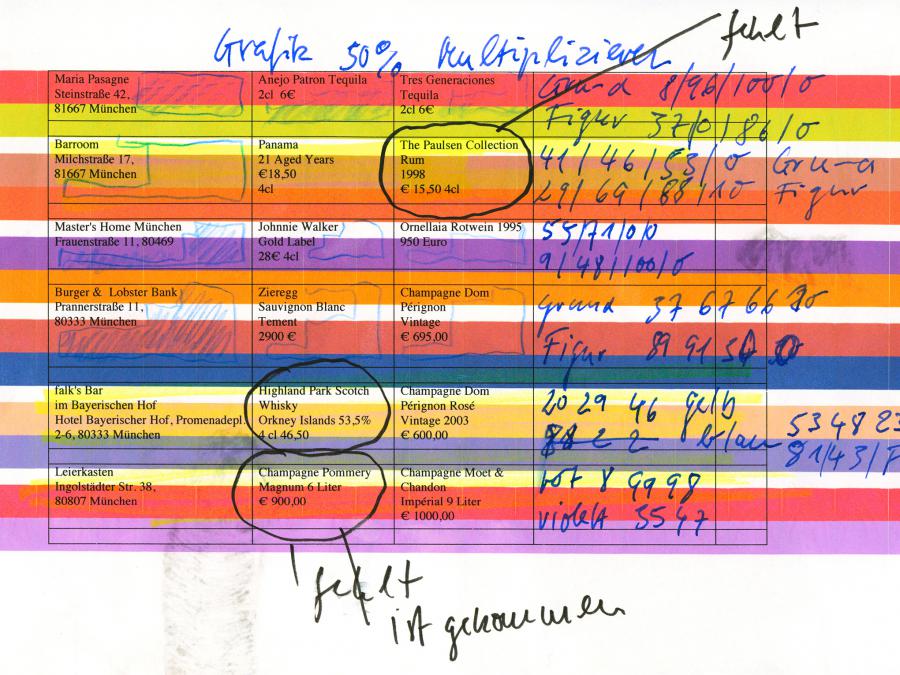 fehlt
Grafik 50% Multiplizieren
Maria Pasagne
Steinstraße 42,
81667 München
Anejo Patron Tequila
2cl 6€
Tres Generaciones
Tequila
2cl 6€
Grund 8/96/100/0
Figur 37/0/86/0
Barroom
Milchstraße 17,
81667 München
Panama
21 Aged Years
€18,50
4cl
The Paulsen Collection
Rum
1998
€ 15,50 4cl
41/46/53/0 Grund
29/69/88/10 Figur
Master's Home München
Frauenstraße 11, 80469
Johnnie Walker
Gold Label
28€ 4cl
Ornellaia Rotwein 1995
950 Euro
55/71/0/0
9/48/100/0
Burger & Lobster Bank
Prannerstraße 11,
80333 München
Zieregg
Sauvignon Blanc
Tement
2900 €
Champagne Dom
Pérignon
Vintage
€ 695,00
grund 37 67 66
Figur 89 91
falk's Bar
im Bayerischen Hof
Hotel Bayerischer Hof, Promenadepl.
2-6, 80333 München
Highland Park Scotch
Whisky
Orkney Islands 53,5%
4 cl 46,50
Champagne Dom
Pérignon Rosé
Vintage 2003
€ 600,00
20 29 46 gelb
blau 53 48 23
81/43/
Leierkasten
Ingolstädter Str. 38,
80807 München
Champagne Pommery
Magnum 6 Liter
€ 900,00
Champagne Moet &
Chandon
Impérial 9 Liter
€ 1000,00
rot 8 99 98
violett 35 47
fehlt
ist gekommen